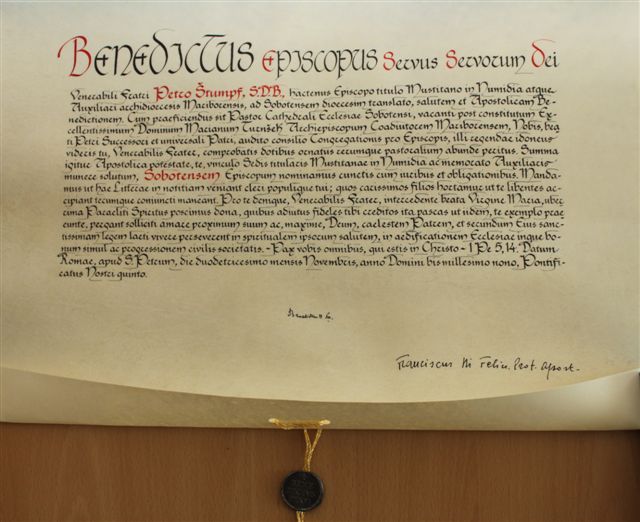 Benedictus Episcopus Servus Servorum Dei
Venerabili Fratri Petro Štumpf, S.D.B., hactenus Episcopo titulo Mustitano in Numidia atque
Auxiliari archidioecesis Mariborensis, ad Sobotensem dioecesim translato, salutem et Apostolicam Be-
nedictionem. Cum praeficiendus sit Pastor Cathedrali Ecclesiae Sobotensi, vacanti post constitutum Ex-
cellentissimum Dominum Marianum Turnšek Archiepiscopum Coadiutorem Mariborensem, Nobis, bea-
ti Petri Successori et universali Patri, audito consilio Congregationis pro Episcopis, illi regendae idoneus
videris tu, Venerabilis Frater, comprobatis dotibus ornatus rerumque pastoralium abunde peritus. Summa
igitur Apostolica potestate, te, vinculo Sedis titularis Mustitanae in Numidia ac memorato Auxiliaris
munere solutum, Sobotensem Episcopum nominamus cunctis cum iuribus et obligationibus. Manda-
mus ut hae Litterae in notitiam veniant cleri populique tui; quos carissimos filios hortamur ut te libentes ac-
cipiant tecumque coniuncti maneant. Pro te denique, Venerabilis Frater, intercedente beata Virgine Maria, uber-
rima Paracliti Spiritus poscimus dona, quibus adiutus fideles tibi creditos ita pascas ut iidem, te exemplo prae-
eunte, pergant solliciti amare proximum suum ac, maxime, Deum, caelestem Patrem, et secundum Eius sanc-
tissimam legem laeti vivere perseverent in spiritualem ipsorum salutem, in aedificationem Ecclesiae inque bo-
num simul ac progressionem civilis societatis. - Pax vobis omnibus, qui estis in Christo - 1 Pe 5, 14. Datum
Romae, apud S. Petrum, die duodetricesimo mensis Novembris, anno Domini bis millesimo nono, Pontifi-
catus Nostri quinto.
Franciscus Di Felice, Prot. Apost.